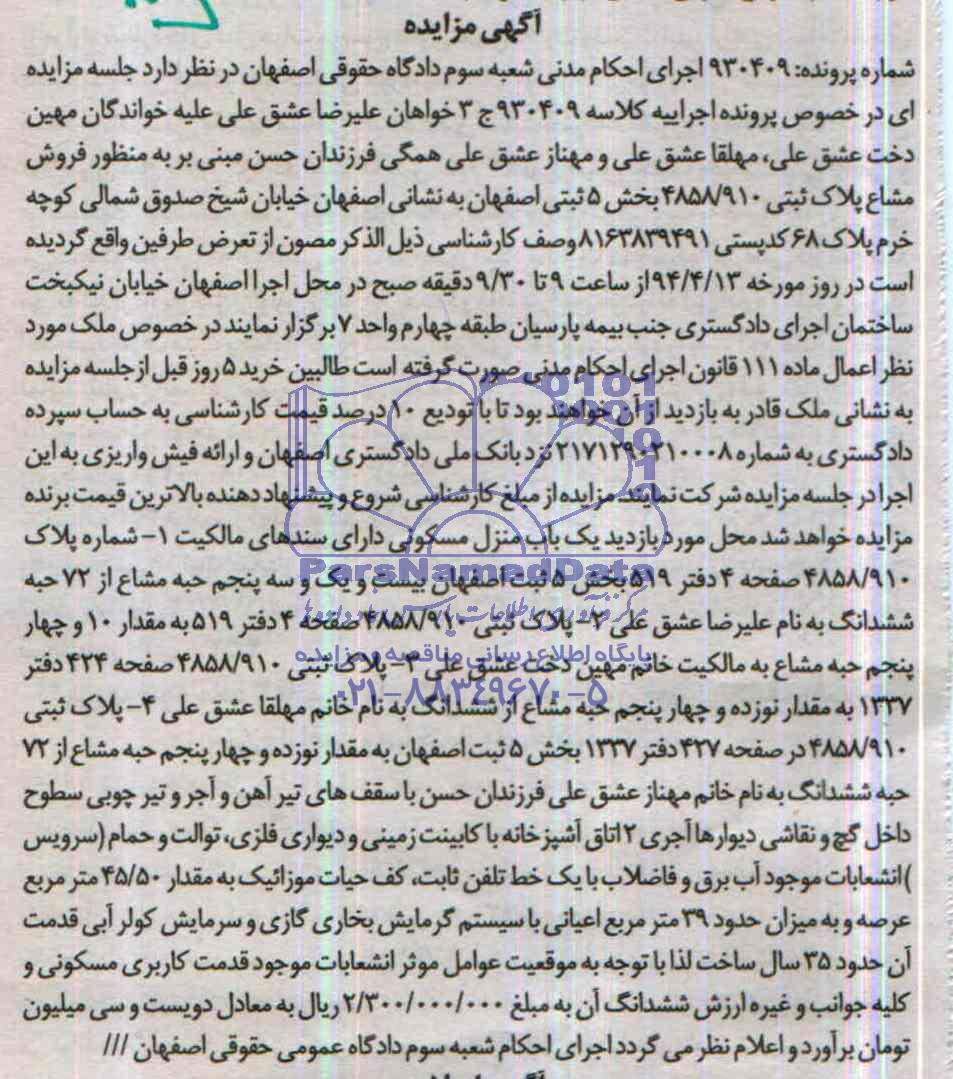 آگهی مزایده
شماره پرونده: ۹۳۰۴۰۹ اجرای احکام مدنی شعبه سوم دادگاه حقوقی اصفهان در نظر دارد جلسه مزایده
ای در خصوص پرونده اجراییه کلاسه ۹۳۰۴۰۹ج ۳ خواهان علیرضا عشق علی علیه خواندگان مهین
دخت عشق علی، مهلقا عشق علی و مهناز عشق علی همگی فرزندان حسن مبنی بر به منظور فروش
مشاع پلاک ثبتی ۴۸۵۸/۹۱۰ بخش ۵ ثبتی اصفهان به نشانی اصفهان خیابان شیخ صدوق شمالی کوچه
خرم پلاک ۶۸ کدپستی ۸۱۶۳۸۳۹۴۹۱ وصف کارشناسی ذیل الذکر مصون از تعرض طرفین واقع گردیده
است در روز مورخه ۹۴/۴/۱۳ از ساعت ۹ تا ۹/۳۰ دقیقه صبح در محل اجرا اصفهان خیابان نیکبخت
ساختمان اجرای دادگستری جنب بیمه پارسیان طبقه چهارم واحد ۷ برگزار نمایند در خصوص ملک مورد
نظر اعمال ماده ۱۱۱ قانون اجرای احکام مدنی صورت گرفته است طالبین خرید ۵ روز قبل از جلسه مزایده
به نشانی ملک قادر به بازدید از آن خواهند بود تا با تودیع ۱۰ درصد قیمت کارشناسی به حساب سپرده
دادگستری به شماره ۲۱۷۱۲۹۰۲۱۰۰۰۸ نزد بانک ملی دادگستری اصفهان و ارائه فیش واریزی به این
اجرا در جلسه مزایده شرکت نمایند. مزایده از مبلغ کارشناسی شروع و پیشنهاد دهنده بالاترین قیمت برنده
مزایده خواهد شد محل مورد بازدید یک باب منزل مسکونی دارای سندهای مالکیت ۱- شماره پلاک
۴۸۵۸/۹۱۰ صفحه ۴ دفتر ۵۱۹ بخش ۵ ثبت اصفهان بیست و یک و سه پنجم حبه مشاع از ۷۲ حبه
ششدانگ به نام علیرضا عشق علی ۲- پلاک ثبتی ۴۸۵۸/۹۱۰ صفحه ۴ دفتر ۵۱۹ به مقدار ۱۰ و چهار
پنجم حبه مشاع به مالکیت خانم مهین دخت عشق علی ۳- پلاک ثبتی ۴۸۵۸/۹۱۰ صفحه ۴۲۴ دفتر
۱۳۳۷ به مقدار نوزده و چهار پنجم حبه مشاع از ششدانگ به نام خانم مهلقا عشق علی ۴- پلاک ثبتی
۴۸۵۸/۹۱۰ در صفحه ۴۲۷ دفتر ۱۳۳۷ بخش ۵ ثبت اصفهان به مقدار نوزده و چهار پنجم حبه مشاع از ۷۲
حبه ششدانگ به نام خانم مهناز عشق علی فرزندان حسن با سقف های تیر آهن و آجر و تیر چوبی سطوح
داخل گچ و نقاشی دیوارها آجری ۲ اتاق آشپزخانه با کابینت زمینی و دیواری فلزی، توالت و حمام (سرویس
)انشعابات موجود آب برق و فاضلاب با یک خط تلفن ثابت، کف حیات موزائیک به مقدار ۴۵/۵۰ متر مربع
عرصه و به میزان حدود ۳۹ متر مربع اعیانی با سیستم گرمایش بخاری گازی و سرمایش کولر آبی قدمت
آن حدود ۳۵ سال ساخت لذا با توجه به موقعیت عوامل موثر انشعابات موجود قدمت کاربری مسکونی و
کلیه جوانب و غیره ارزش ششدانگ آن به مبلغ ۲/۳۰۰/۰۰۰/۰۰۰ ریال به معادل دویست و سی میلیون
تومان برآورد و اعلام نظر می گردد اجرای احکام شعبه سوم دادگاه عمومی حقوقی اصفهان ///
ParsNamadData
مرکز فرآوری اطلاعات پارس نماد داده ها
پایگاه اطلاع رسانی مناقصه و مزایده
۰۲۱-۸۸۳۴۹۶۷۰-۵